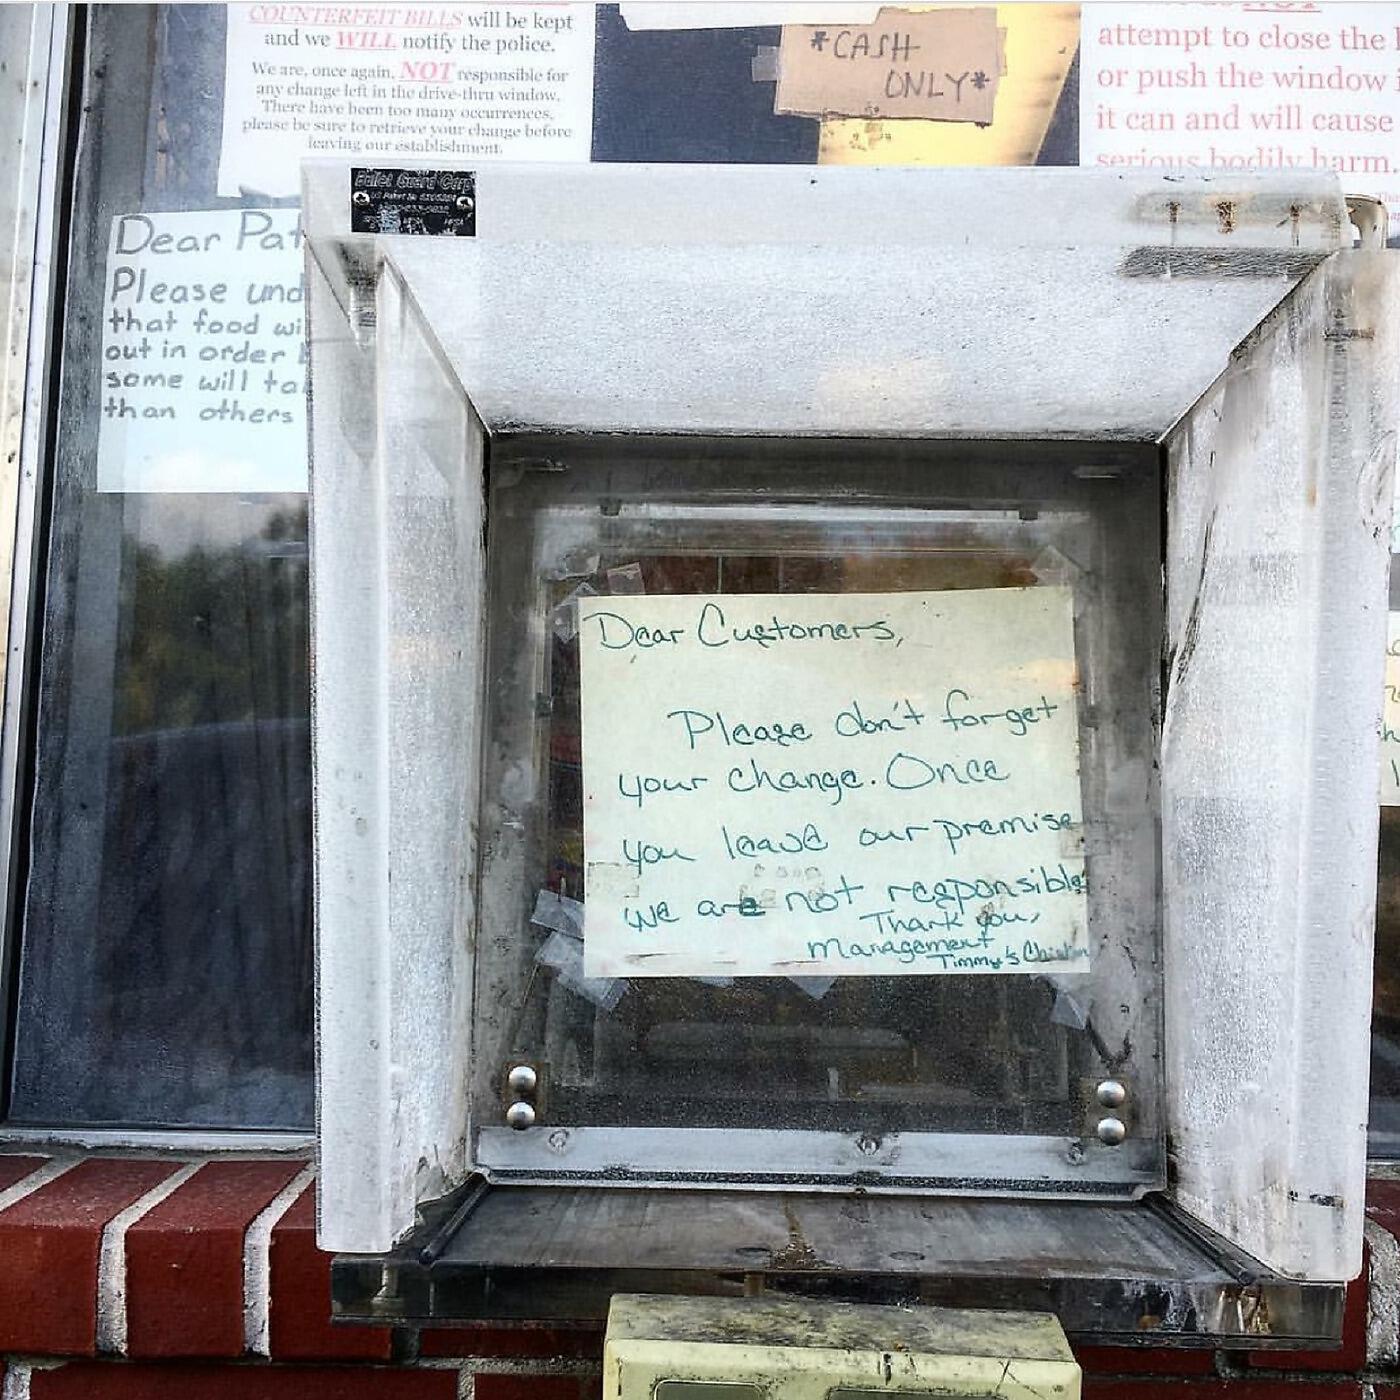 COUNTERFEIT BILLS will be kept
and we WILL notify the police.
We are, once again, NOT responsible for
any change left in the drive-thru window.
There have been too many occurrences,
please be sure to retrieve your change before
leaving our establishment.
*CASH
ONLY*
attempt to close the
or push the window
it can and will cause
serious bodily harm.
Bullet Guard Corp
Dear Pat
Please und
that food wi
out in order
some will ta
than others
Dear Customers,
Please don't forget
your change. Once
you leave our premise
we are not responsible
Thank you,
Management
Timmy's